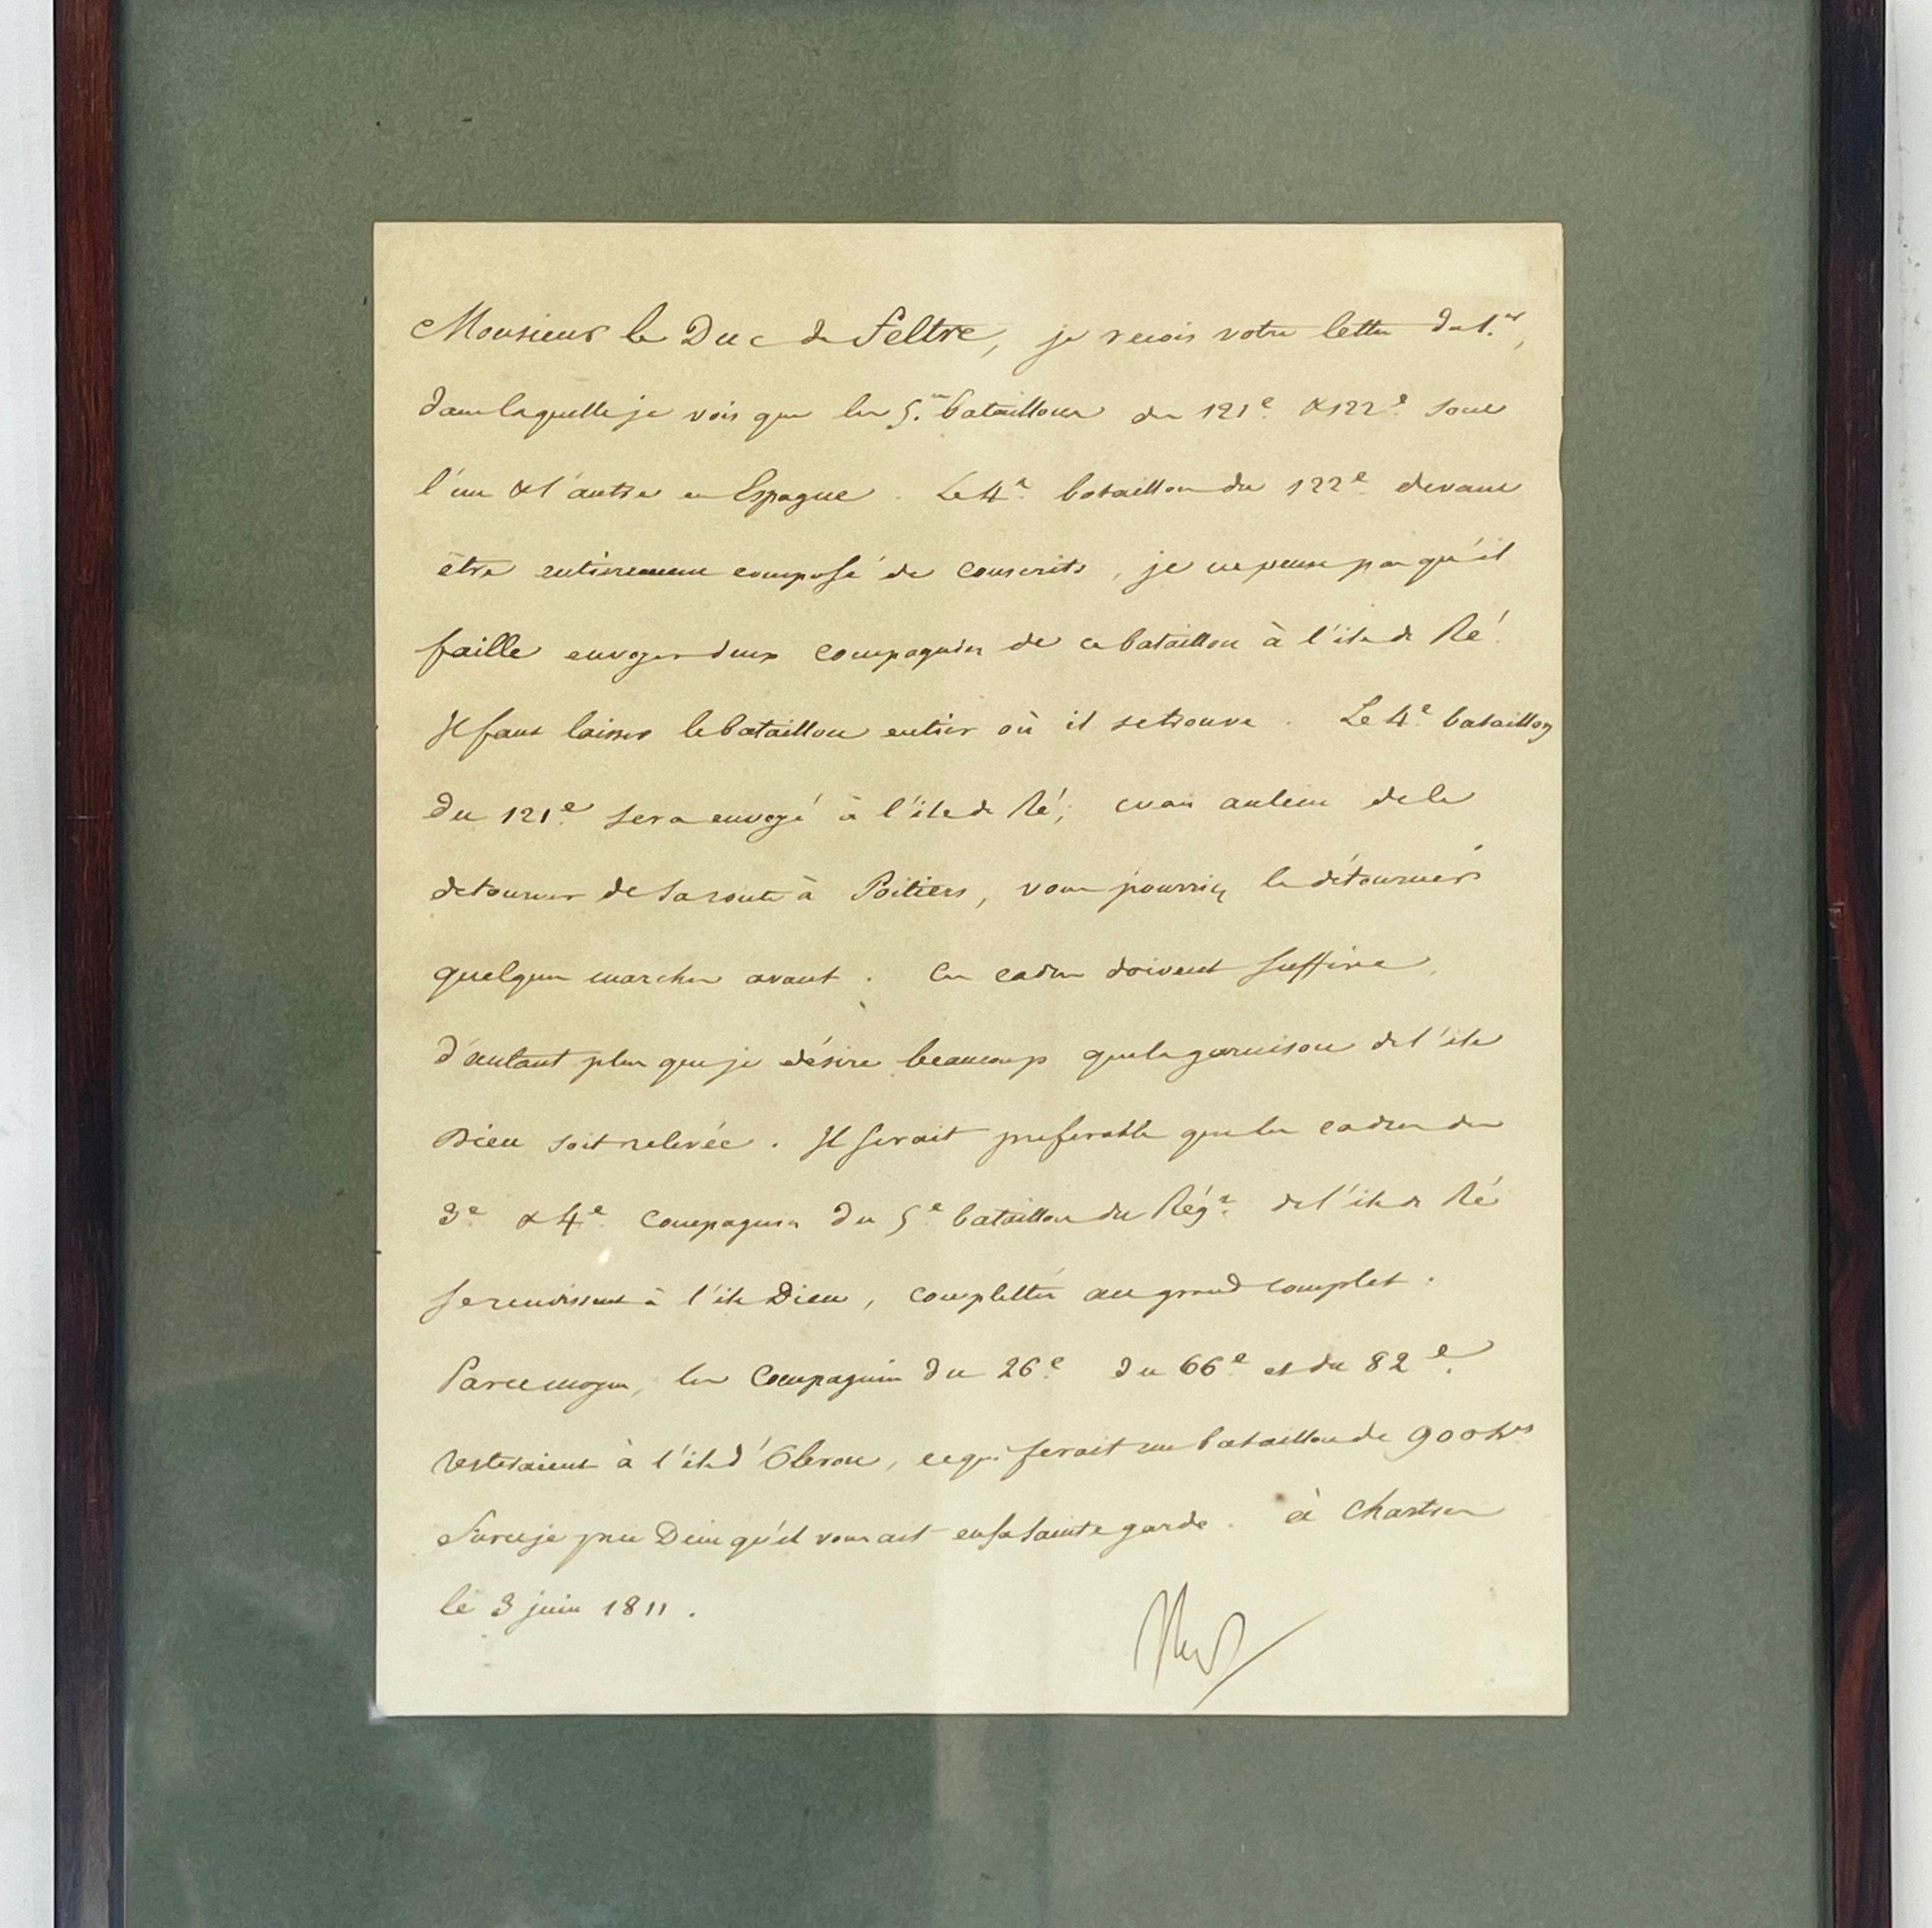 Monsieur le Duc de Feltre, je recois votre lettre du 1.er,
dans laquelle je vois que les 5.es bataillons du 121e. & 122e. sont
l'un & l'autre en Espagne. Le 4e. bataillon du 122e. devant
être entierement composé de conscrits, je ne pense pas qu'il
faille envoyer deux compagnies de ce bataillon à l'ile de Ré.
Il faut laisser le bataillon entier où il se trouve. Le 4e. bataillon
du 121e. sera envoyé à l'ile de Ré; mais au lieu de le
detourner de sa route à Poitiers, vous pourriez le détourner
quelques marches avant. Ces cadres doivent suffire,
d'autant plus que je désire beaucoup que la garnison de l'ile
Dieu soit relevée. Il serait preferable que les cadres des
3e. & 4e. compagnies du 5e. bataillon du Régt. de l'ile de Ré
se rendissent à l'ile Dieu, complettés au grand complet.
Par ce moyen, les compagnies du 26e. du 66e. et du 82e.
resteraient à l'ile d'Oleron, ce qui ferait un bataillon de 900 hes
Sur ce je prie Dieu qu'il vous ait en sa sainte garde. à Chartres
le 3 juin 1811.